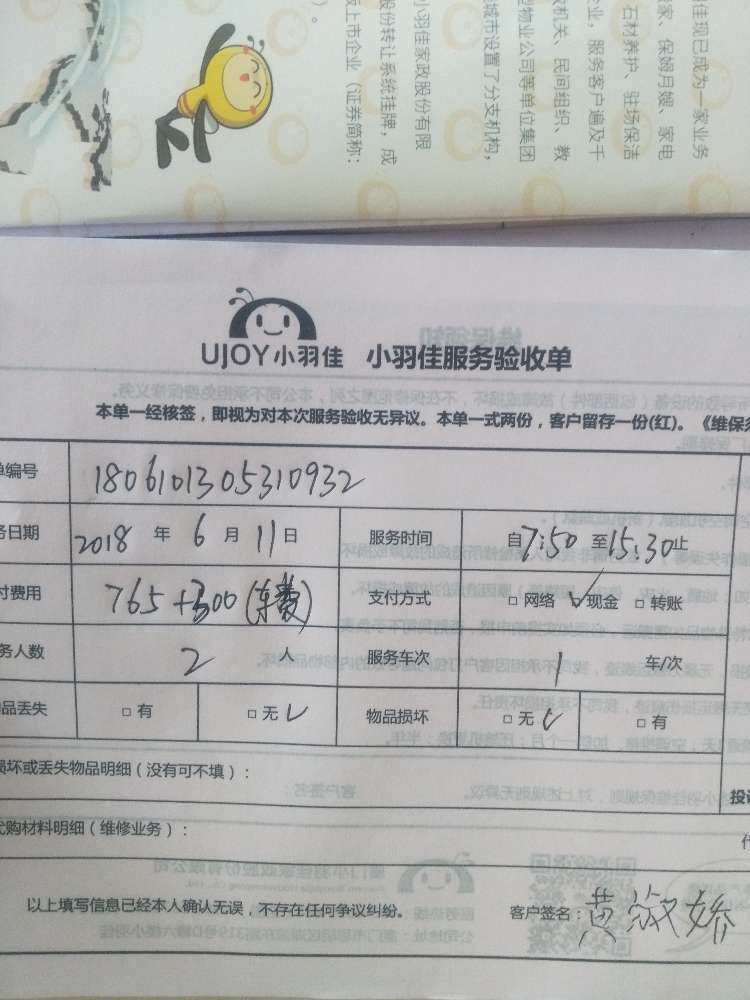 佳现已成为一家业务
家、保姆月嫂、家电
石材养护、驻场保洁
企业，服务客户遍及千
机关、民间组织、教
物业公司等单位集团
城市设置了分支机构，
小羽佳家政股份有限
股份转让系统挂牌，成
板上市企业（证券简称：
）。
UJOY小羽佳 小羽佳服务验收单
本单一经核签，即视为对本次服务验收无异议。本单一式两份，客户留存一份(红)。《维保须
单编号 1806101305310932
务日期 2018 年 6 月 11 日 服务时间 自7:50 至15:30止
付费用 765+300(车费) 支付方式 □ 网络 ✓现金 □ 转账
务人数 2 人 服务车次 1 车/次
品丢失 □ 有 □ 无✓ 物品损坏 □ 无✓ □ 有
损坏或丢失物品明细（没有可不填）：
投诉
代购材料明细（维修业务）：
以上填写信息已经本人确认无误，不存在任何争议纠纷。 客户签名：黄淑娇